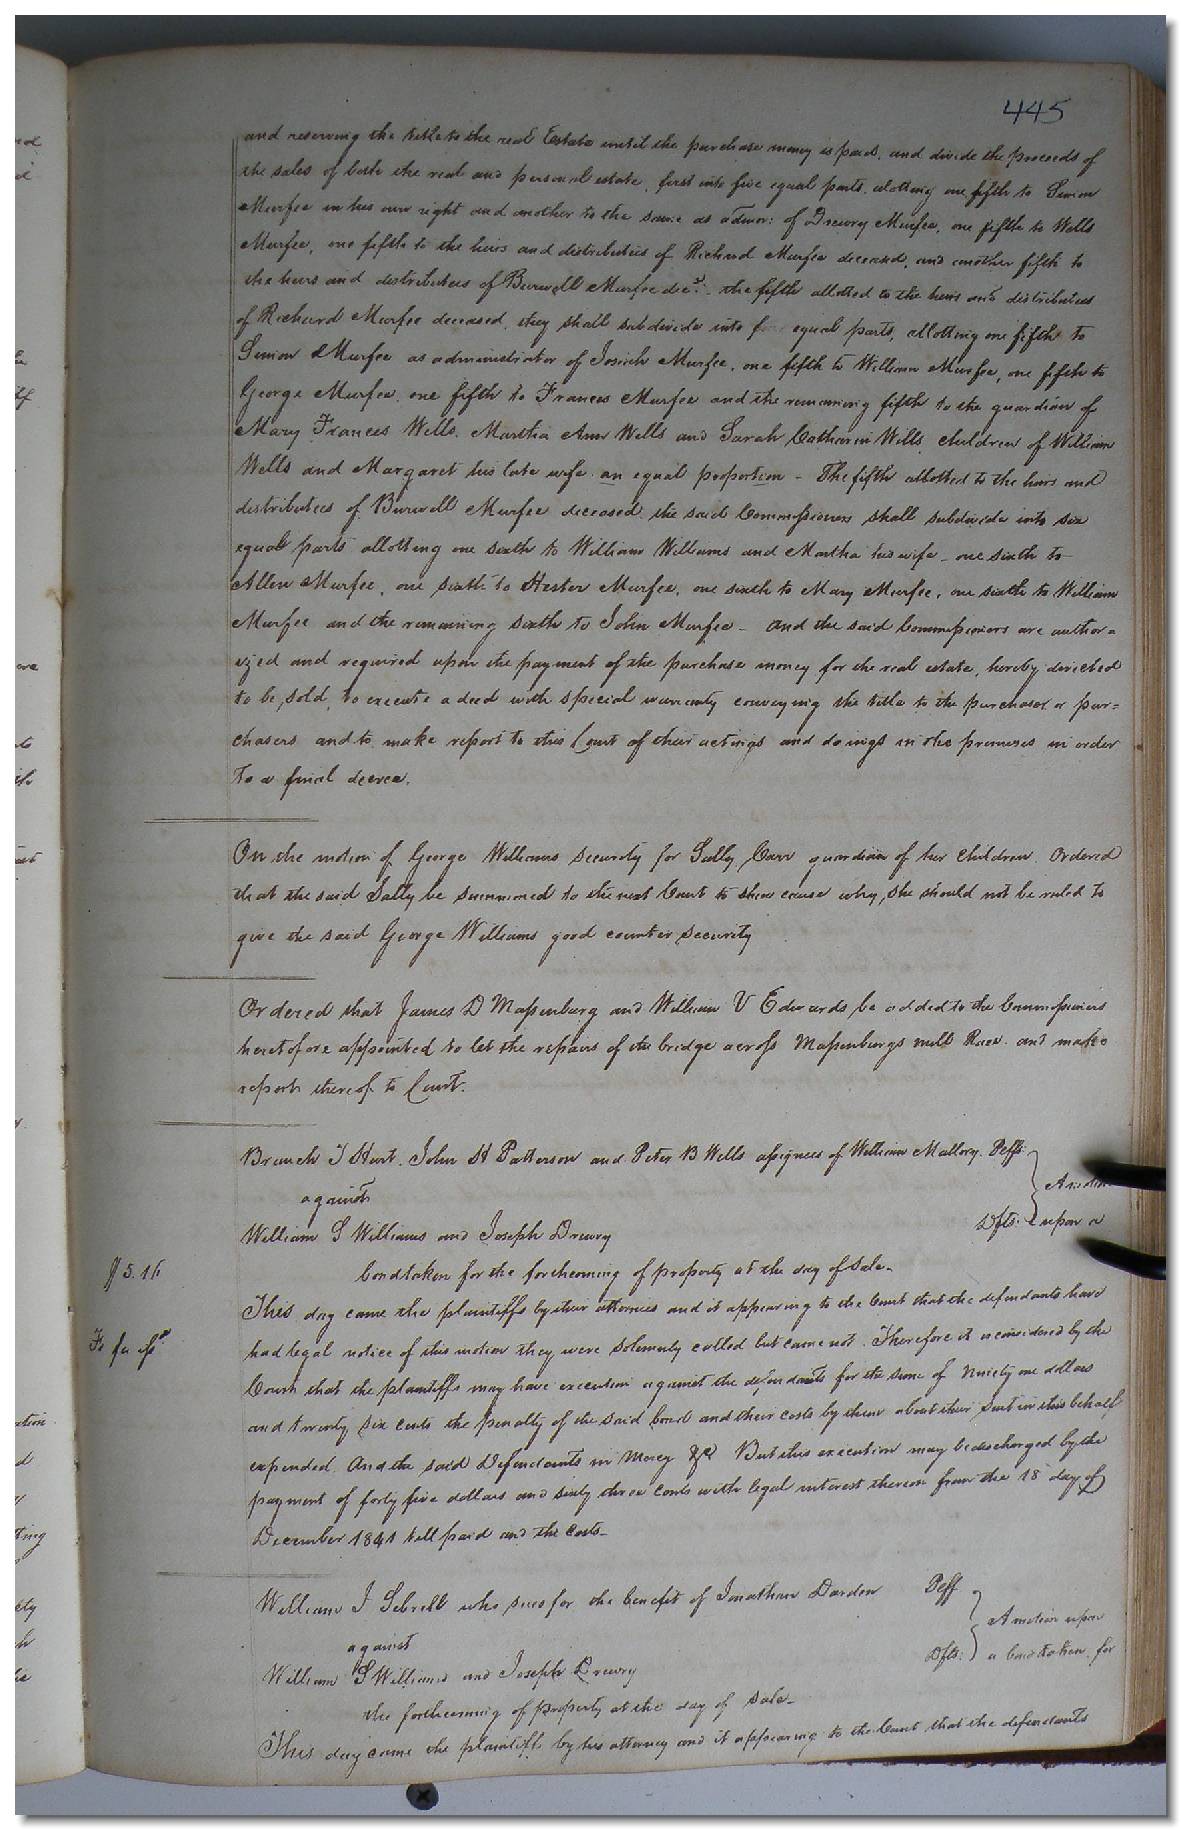 445
and reserving the title to the real Estate until the purchase money is paid, and divide the proceeds of
the sales of both the real and personal estate, first into five equal parts, alotting one fifth to Simon
Murfee in his own right and another to the same as admor: of Drewry Murfee, one fifth to Wells
Murfee, one fifth to the heirs and distributees of Richard Murfee deceased, and another fifth to
the heirs and distributees of Burwell Murfee decd. - the fifth allotted to the heirs and distributees
of Richard Murfee deceased, they shall subdivide into equal parts, allotting one fifth to
Simon Murfee as administrator of Josiah Murfee, one fifth to William Murfee, one fifth to
George Murfee, one fifth to Frances Murfee and the remaining fifth to the guardian of
Mary Frances Wells, Martha Ann Wells and Sarah Catharin Wills, children of William
Wells and Margaret his late wife an equal proportion - The fifth allotted to the heirs and
distributees of Burwell Murfee deceased the said Commissioners shall subdivide into six
equal parts allotting one sixth to William Williams and Martha his wife - one sixth to
Allen Murfee, one sixth to Hester Murfee, one sixth to Mary Murfee, one sixth to William
Murfee and the remaining sixth to John Murfee - and the said Commissioners are author=
ized and required upon the payment of the purchase money for the real estate, hereby directed
to be sold, to execute a deed with special warranty conveying the title to the purchaser or pur=
chasers and to make report to this Court of their actings and doings in the premises in order
to a final decree.
On the motion of George Williams security for Sally Carr guardian of her children. Ordered
that the said Sally be summoned to the next Court to shew cause why, she should not be ruled to
give the said George Williams good counter security
Ordered that James D Massenburg and William V Edwards be added to the Commissioners
heretofore appointed to let the repairs of the bridge across Massenburgs mill Race and make
report thereof to Court.
Branch T Hurt, John H Patterson and Peter B Wells assignees of William Mallory. Plffs.
against
A motion
William S Williams and Joseph Drewry Dfts: upon a
bond taken for the forthcoming of property at the day of sale -
$5.16
This day came the plaintiffs by their attornies and it appearing to the Court that the defendants have
Fi fa issd
had legal notice of this motion they were solemnly called but came not. Therefore it is considered by the
Court that the plaintiffs may have execution against the defendants for the sum of Ninety one dollars
and twenty six cents the penalty of the said bond and their costs by them about their suit in this behalf
expended. And the said Defendants in Mercy &c But this execution may be discharged by the
payment of forty five dollars and sixty three cents with legal interest thereon from the 18 day of
December 1841 till paid and the costs -
William J Sebrell who sues for the benefit of Jonathan Darden Plff
A motion upon
against
Dfts: a bond taken for
William S Williams and Joseph Drewry
the forthcoming of property at the day of sale -
This day came the plaintiff by his attorney and it appearing to the Court that the defendants